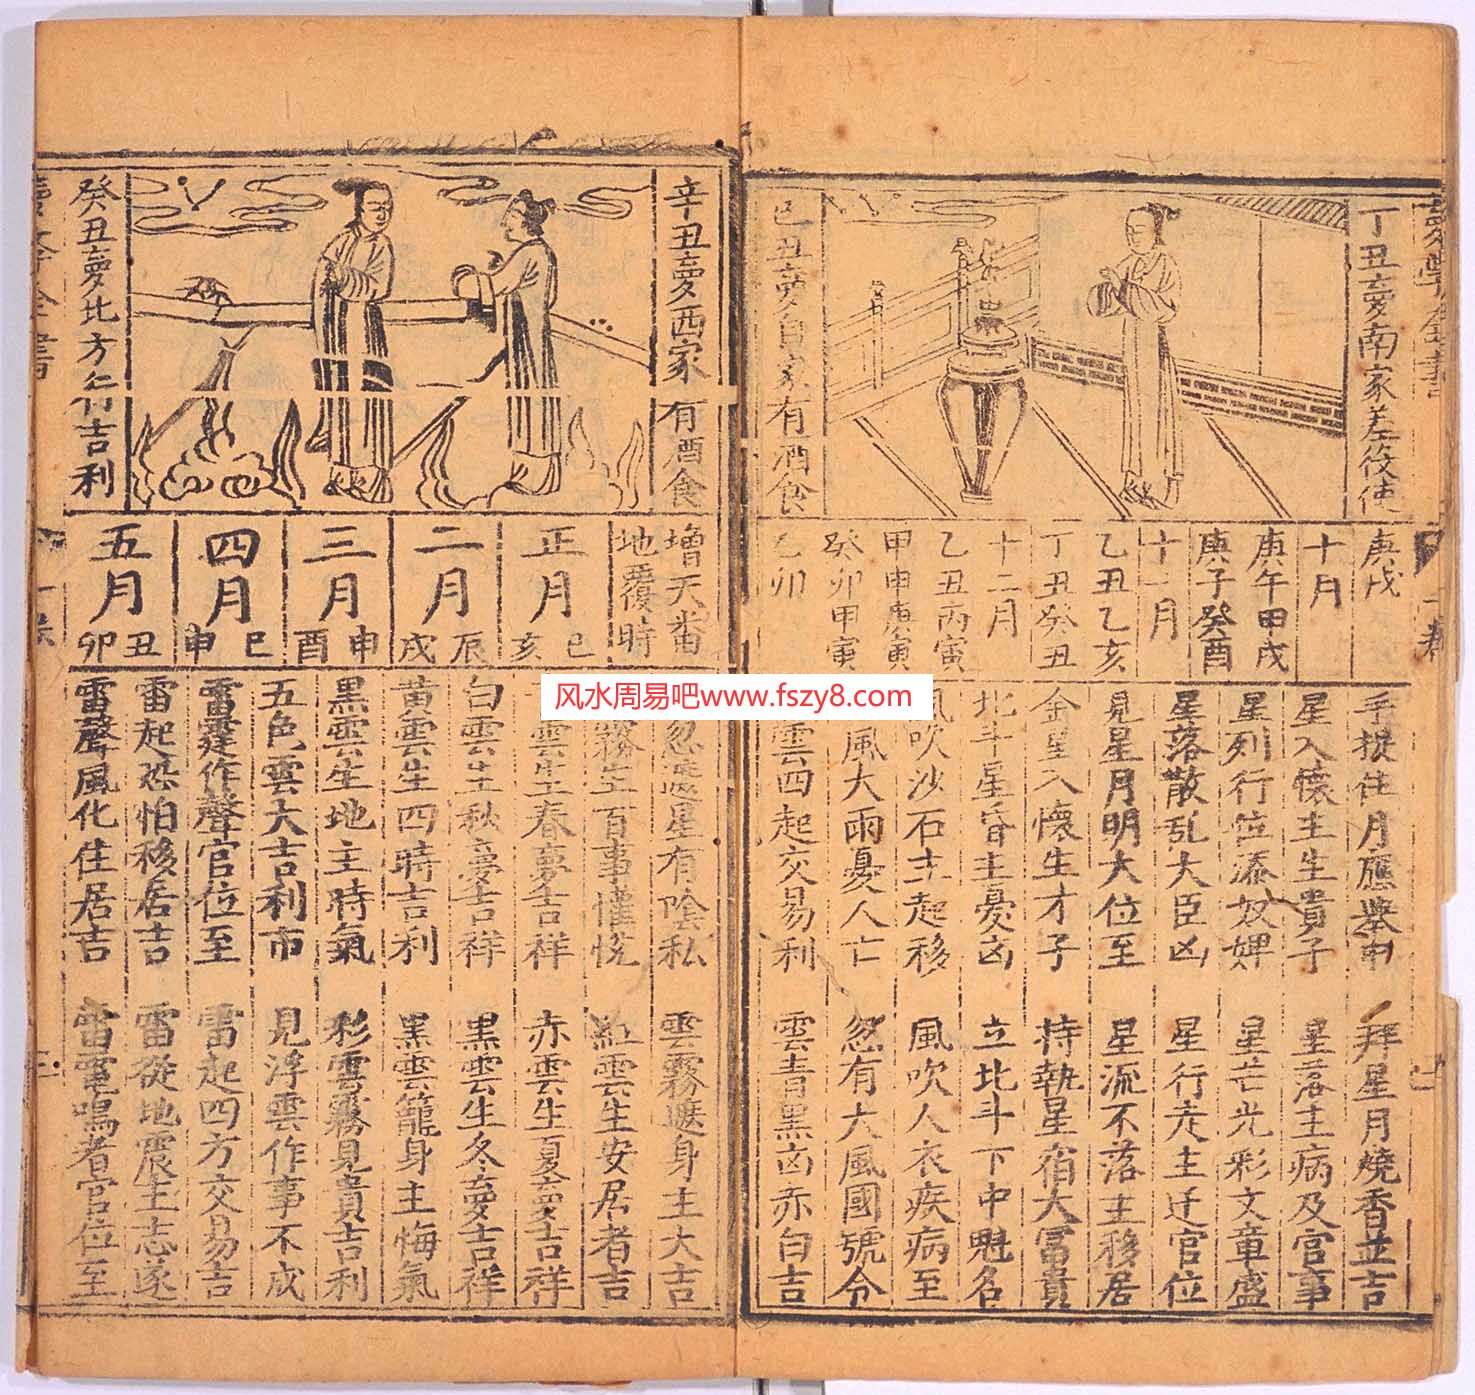 丁丑夢南家差役使
己丑夢自家有酒食
庚戌
十月
庚午甲戌
庚子癸酉
十一月
乙丑乙亥
丁丑癸丑
十二月
乙丑丙寅
甲申庚寅
癸卯甲寅
乙卯
手擬住月應舉中
拜星月燒香並吉
星入懷主生貴子
星落主病及官事
星列行位添奴婢
星芒光彩文章盛
星落散乱大臣凶
星行走主迁官位
見星月明大位至
星流不落主移居
金星入懷生才子
持執星宿大富貴
北斗星昏主憂凶
立北斗下中魁名
風吹沙石主起移
風吹人衣疾病至
風大雨憂人亡
忽有大風國號令
雲四起交易利
雲青黑凶赤白吉
辛丑夢西家有酒食
癸丑夢北方行吉利
增天番
地覆時
正月
巳亥
二月
辰戌
三月
申酉
四月
巳申
五月
丑卯
忽遮星有陰私
雲霧遮身主大吉
霧生百事懽悅
紅雲生安居者吉
雲生春夢吉祥
赤雲生夏夢吉祥
白雲生秋夢吉祥
黑雲生冬夢吉祥
黄雲生四時吉利
黑雲籠身主悔氣
黑雲生地主時氣
彩雲霧見貴吉利
五色雲大吉利市
見浮雲作事不成
雷霆作聲官位至
雷起四方交易吉
雷起恐怕移居吉
雷從地震主志遂
雷聲風化住居吉
雷電鳴者官位至
风水周易吧www.fszy8.com